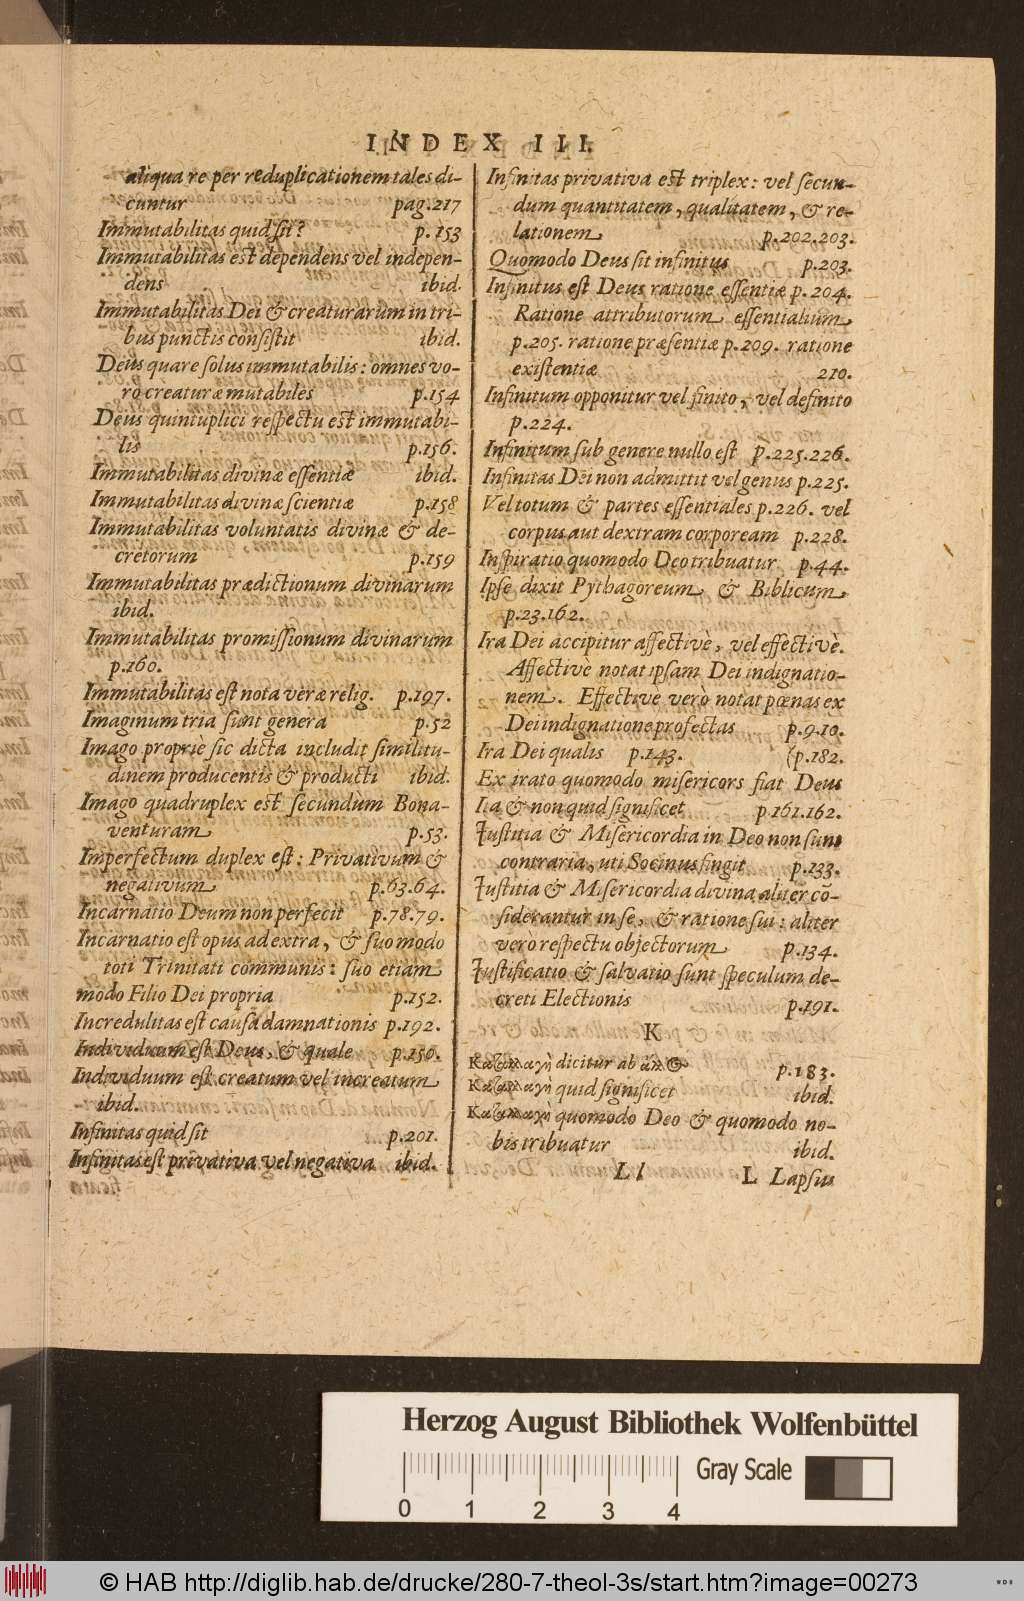 INDEX III.
aliqua re per reduplicationem tales di-
cuntur pag.217
Immutabilitas quid ſit? p.153
Immutabilitas est dependens vel indepen-
dens ibid.
Immutabilitas Dei & creaturarum in tri-
bus punctis conſiſtit ibid.
Deus quare ſolus immutabilis: omnes vo-
ro creaturæ mutabiles p.154
Deus quintuplici reſpectu est immutabi-
lis p.156.
Immutabilitas divinæ eſſentiæ ibid.
Immutabilitas divinæ ſcientiæ p.158
Immutabilitas voluntatis divinæ & de-
cretorum p.159
Immutabilitas prædictionum divinarum
ibid.
Immutabilitas promiſſionum divinarum
p.160.
Immutabilitas eſt nota veræ relig. p.197.
Imaginum tria ſunt genera p.52
Imago propriè ſic dicta includit ſimilitu-
dinem producentis & producti ibid.
Imago quadruplex est ſecundum Bona-
venturam p.53.
Imperfectum duplex est: Privativum &
negativum p.63.64.
Incarnatio Deum non perfecit p.78.79.
Incarnatio eſt opus ad extra, & ſuo modo
toti Trinitati communis: ſuo etiam
modo Filio Dei propria p.152.
Incredulitas eſt cauſa damnationis p.192.
Individuum eſt Deus, & quale p.150.
Individuum eſt creatum vel increatum
ibid.
Infinitas quid ſit p.201.
Infinitas eſt privativa vel negativa ibid.
Infinitas privativa est triplex: vel ſecun-
dum quantitatem, qualitatem, & re-
lationem p.202.203.
Quomodo Deus ſit infinitus p.203.
Infinitus eſt Deus ratione eſſentiæ p.204.
Ratione attributorum eſſentialium
p.205. ratione præſentiæ p.209. ratione
exiſtentiæ 210.
Infinitum opponitur vel finito, vel definito
p.224.
Infinitum ſub genere nullo eſt p.225.226.
Infinitas Dei non admittit vel genus p.225.
Vel totum & partes eſſentiales p.226. vel
corpus aut dextram corpoream p.228.
Inſpiratio quomodo Deo tribuatur p.44.
Ipſe dixit Pythagoreum & Biblicum
p.23.162.
Ira Dei accipitur affectivè, vel effectivè.
Affectivè notat ipſam Dei indignatio-
nem. Effectivè verò notat pœnas ex
Dei indignatione profectas p.9.10.
Ira Dei qualis p.143. (p.182.
Ex irato quomodo miſericors fiat Deus
Ita & non quid ſignificet p.161.162.
Juſtitia & Miſericordia in Deo non ſunt
contraria, uti Socinus fingit p.133.
Juſtitia & Miſericordia divina aliter cō-
ſiderantur in ſe, & ratione ſui: aliter
verò reſpectu objectorum p.134.
Juſtificatio & ſalvatio ſunt ſpeculum de-
creti Electionis p.191.
K
dicitur ab p.183.
quid ſignificet ibid.
quomodo Deo & quomodo no-
bis tribuatur ibid.
Ll L Lapſus
Herzog August Bibliothek Wolfenbüttel
Gray Scale
0 1 2 3 4
© HAB http://diglib.hab.de/drucke/280-7-theol-3s/start.htm?image=00273